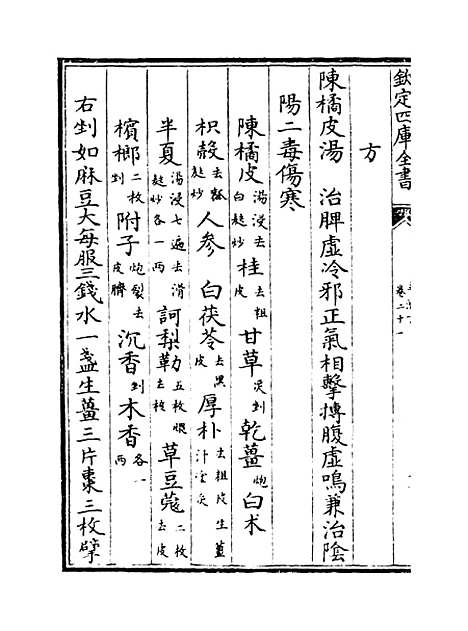 欽定四庫全書 卷二十一
方
陳橘皮湯 治脾虛冷邪正氣相擊搏腹虛鳴兼治陰
陽二毒傷寒
陳橘皮湯浸去白麩炒 桂去粗皮 甘草炙剉 乾薑炮 白术
枳殼去瓤麩炒 人參 白茯苓去黑皮 厚朴去粗皮生薑汁塗炙
半夏湯浸七遍去滑麩炒各一兩 訶梨勒五枚煨去核 草豆蔻二枚去皮
檳榔二枚剉 附子炮裂去皮臍 沉香剉 木香各一兩
右剉如麻豆大每服三錢水一盞生薑三片棗三枚擘